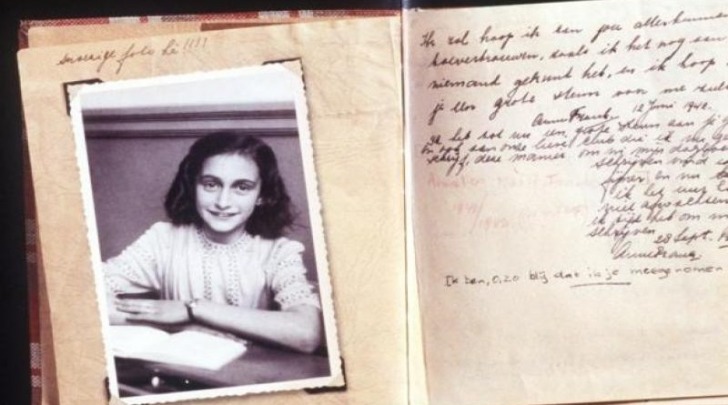 snoezige foto hè!!!!
Ik zal hoop ik aan jou alles kunnen
toevertrouwen, zoals ik het nog aan
niemand gekund heb, en ik hoop
je een grote steun voor me zult
Anne Frank. 12 Juni 1942.
Ik heb tot nu een grote steun aan je
en ook aan onze lieve club die ik nu
schrijf, deze manier om in mijn dagboek
schrijven vind
fijner en nu
ik het uur
niet afwachten
ik tijd heb om
schrijven
28 Sept. 19
Anne Frank
Ik ben, O, zo blij dat ik je meegenomen